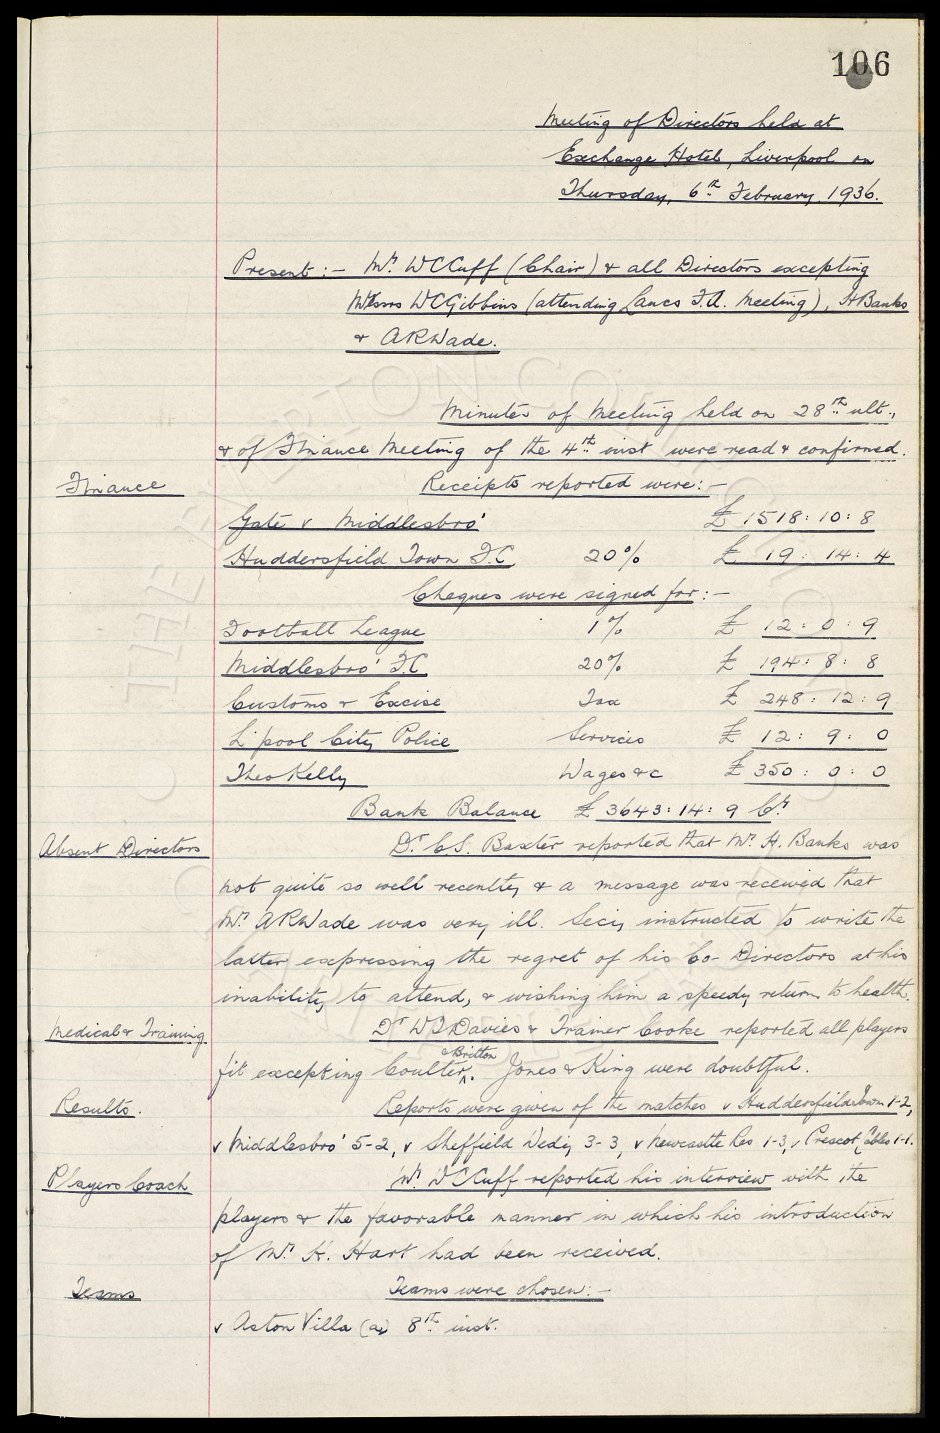 106
Meeting of Directors held at
Exchange Hotel, Liverpool on
Thursday, 6th February, 1936.
Present:- Mr. WCCuff (Chair) & all Directors excepting
Messrs WCGibbins (attending Lancs F.A. Meeting), H Banks
& ARWade.
Minutes of Meeting held on 28th ult.,
& of Finance Meeting of the 4th inst were read & confirmed.
Finance Receipts reported were:-
Gate v Middlesbro' £ 1518:10:8
Huddersfield Town F.C. 20% £ 19:14:4
Cheques were signed for:-
Football League 1% £ 12:0:9
Middlesbro' F.C 20% £ 194:8:8
Customs & Excise Tax £ 248:12:9
L'pool City Police Services £ 12:9:0
Theo Kelly Wages &c £ 350:0:0
Bank Balance £ 3643:14:9 Cr.
Absent Directors Dr. CS. Baxter reported that Mr. H. Banks was
not quite so well recently & a message was received that
Mr. ARWade was very ill. Secy instructed to write the
latter expressing the regret of his Co-Directors at his
inability to attend, & wishing him a speedy return to health.
Medical & Training Dr WJDavies & Trainer Cooke reported all players
fit excepting Coulter & Britton. Jones & King were doubtful.
Results. Reports were given of the matches v Huddersfield Town 1-2,
v Middlesbro' 5-2, v Sheffield Wedy 3-3, v Newcastle Res 1-3, v Prescot Cables 1-1.
Players Coach Mr. WCCuff reported his interview with the
players & the favorable manner in which his introduction
of Mr. H. Hart had been received.
Teams Teams were chosen:-
v Aston Villa (a) 8th inst.